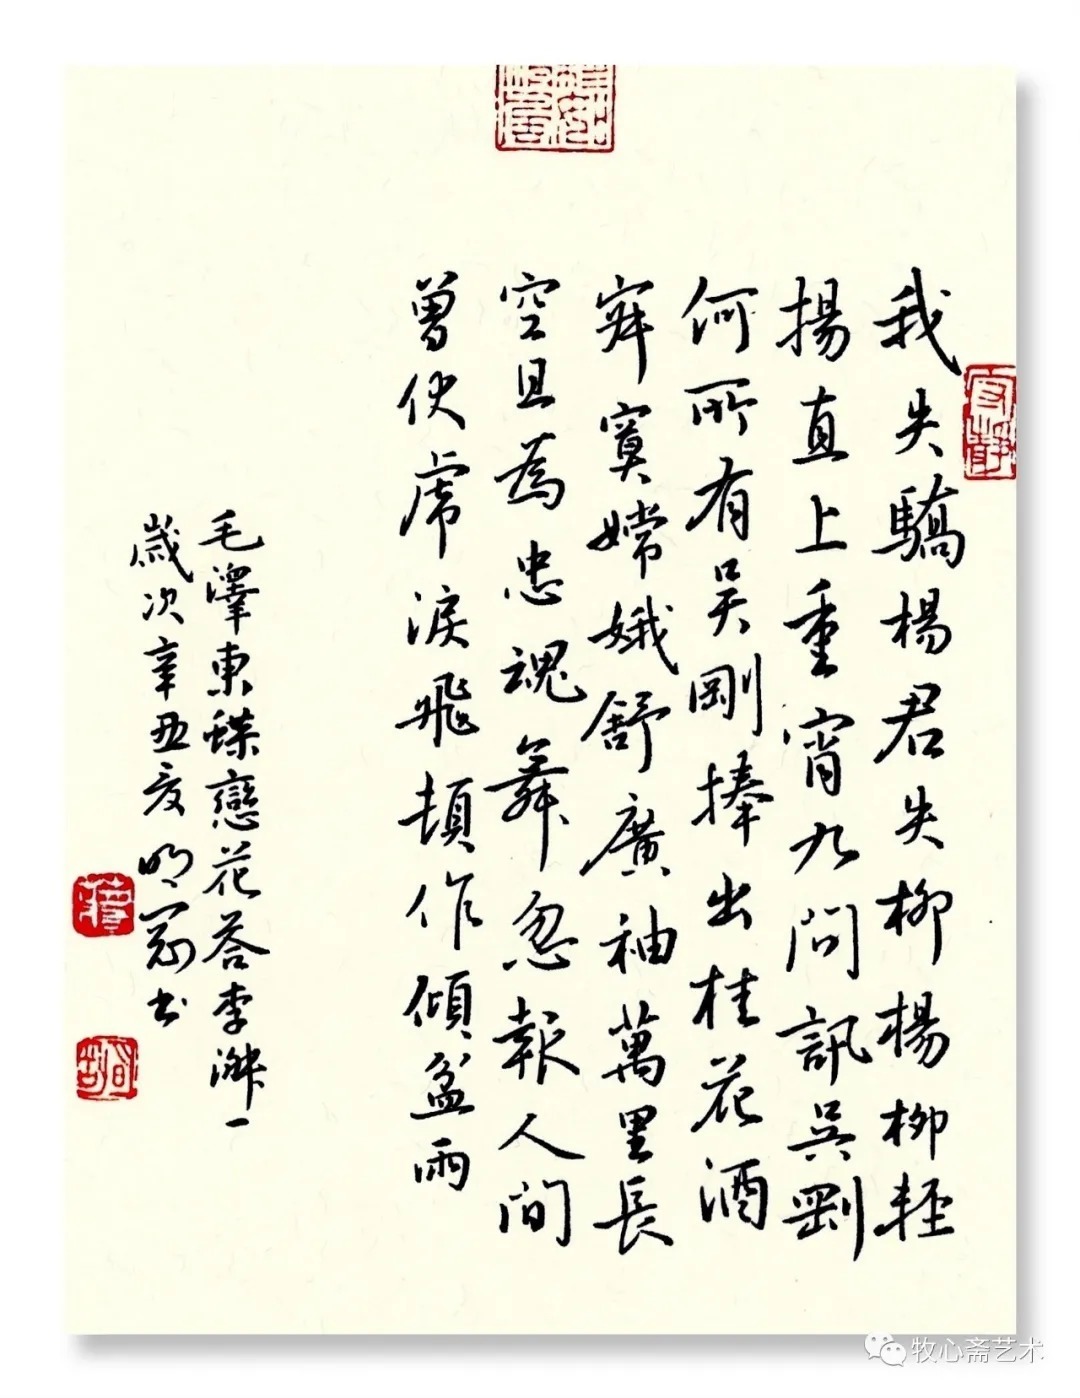 我失驕楊君失柳楊柳輕
揚直上重宵九問訊吳剛
何所有吳剛捧出桂花酒
寂寞嫦娥舒廣袖萬里長
空且為忠魂舞忽報人間
曾伏虎淚飛頓作傾盆雨
毛澤東蝶戀花荅李淑一
歲次辛丑夏明書
牧心斋艺术